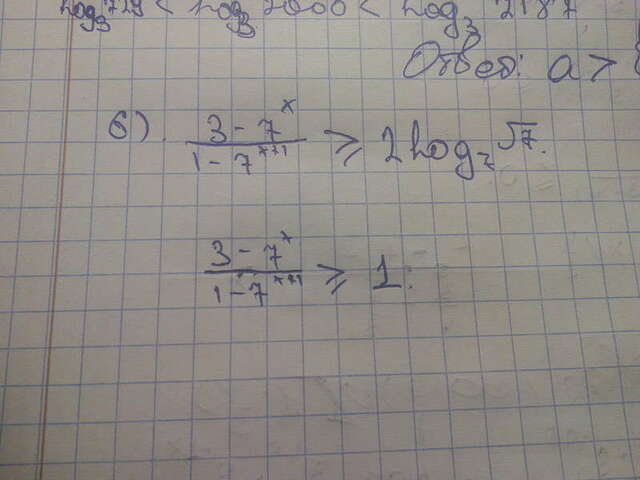 log₃ 729 < log₃ 2000 < log₃ 2187
Ответ: a >
6). (3 - 7^x)/(1 - 7^(x+1)) ⩾ 2log₇ √7.
(3 - 7^x)/(1 - 7^(x+1)) ⩾ 1.